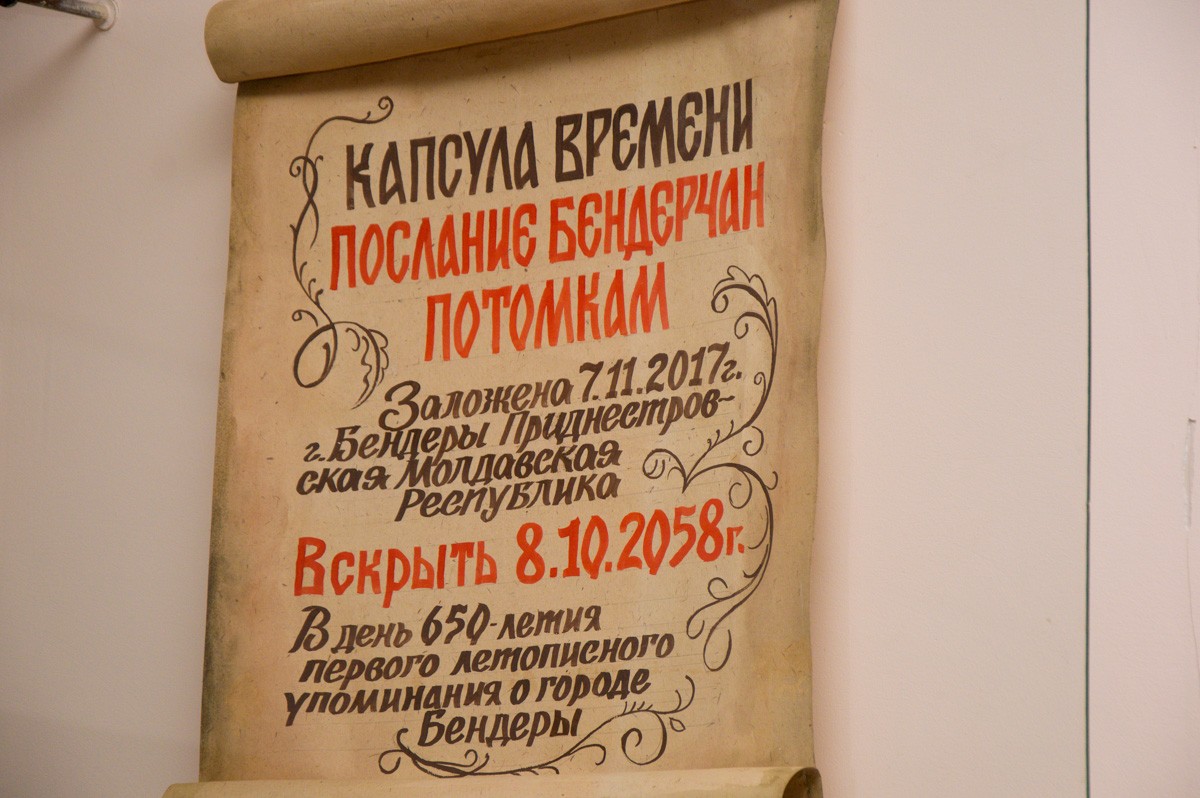 КАПСУЛА ВРЕМЕНИ
ПОСЛАНИЕ БЕНДЕРЧАН
ПОТОМКАМ
Заложена 7.11.2017г.
г. Бендеры Приднестров-
ская Молдавская
Республика
Вскрыть 8.10.2058г.
В день 650-летия
первого летописного
упоминания о городе
Бендеры